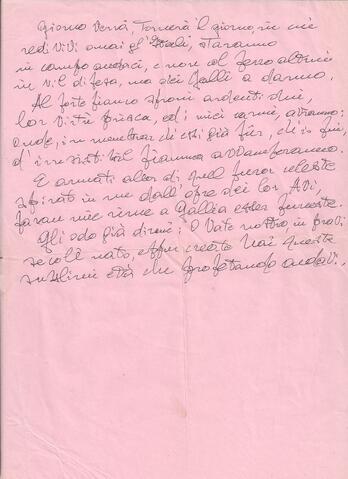 Giorno verrà, tornerà il giorno, in cui
redivivi omai gl'Itali, staranno
in campo audaci, e non col ferro altrui
in vil difesa, ma dei Galli a danno.
Al forte fianco sproni ardenti dui,
lor virtù prisca, ed i miei carmi, avranno:
onde, in membrar ch'essi già fur, ch'io fui,
d'irresistibil fiamma avvamperanno.
E armati allor di quel furor celeste
spirato in me dall'opre dei lor Avi,
faran mie rime a Gallia esser funeste.
Gli odo già dirmi: O Vate nostro, in pravi
secoli nato, eppur create hai queste
sublimi età che profetando andavi.